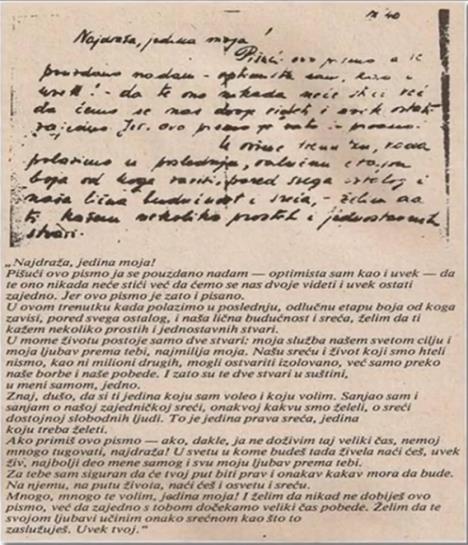 40
Najdraža, jedina moja!
Pišući ovo pismo a se
pouzdano nadam - optimista sam, kao i
uvek! - da te ono nikada neće stići već
da ćemo se nas dvoje videti i uvek ostati
zajedno. Jer ovo pismo je zato i pisano.
U ovome trenutku, kada
polazimo u poslednju, odlučnu etapu
boja od koga zavisi, pored svega ostalog i
naša lična budućnost i sreća, - želim da
ti kažem nekoliko prostih i jednostavnih
stvari.
„Najdraža, jedina moja!
Pišući ovo pismo ja se pouzdano nadam — optimista sam kao i uvek — da
te ono nikada neće stići već da ćemo se nas dvoje videti i uvek ostati
zajedno. Jer ovo pismo je zato i pisano.
U ovom trenutku kada polazimo u poslednju, odlučnu etapu boja od koga
zavisi, pored svega ostalog, i naša lična budućnost i sreća, želim da ti
kažem nekoliko prostih i jednostavnih stvari.
U mome životu postoje samo dve stvari: moja služba našem svetom cilju i
moja ljubav prema tebi, najmilija moja. Našu sreću i život koji smo hteli
nismo, kao ni milioni drugih, mogli ostvariti izolovano, već samo preko
naše borbe i naše pobede. I zato su te dve stvari u suštini,
u meni samom, jedno.
Znaj, dušo, da si ti jedina koju sam voleo i koju volim. Sanjao sam i
sanjam o našoj zajedničkoj sreći, onakvoj kakvu smo želeli, o sreći
dostojnoj slobodnih ljudi. To je jedina prava sreća, jedina
koju treba želeti.
Ako primiš ovo pismo — ako, dakle, ja ne doživim taj veliki čas, nemoj
mnogo tugovati, najdraža! U svetu u kome budeš tada živela naći ćeš, uvek
živ, najbolji deo mene samog i svu moju ljubav prema tebi.
Za tebe sam siguran da će tvoj put biti prav i onakav kakav mora da bude.
Na njemu, na putu života, naći ćeš i osvetu i sreću.
Mnogo, mnogo te volim, jedina moja! I želim da nikad ne dobiješ ovo
pismo, već da zajedno s tobom dočekamo veliki čas pobede. Želim da te
svojom ljubavi učinim onako srećnom kao što to
zaslužuješ. Uvek tvoj.“